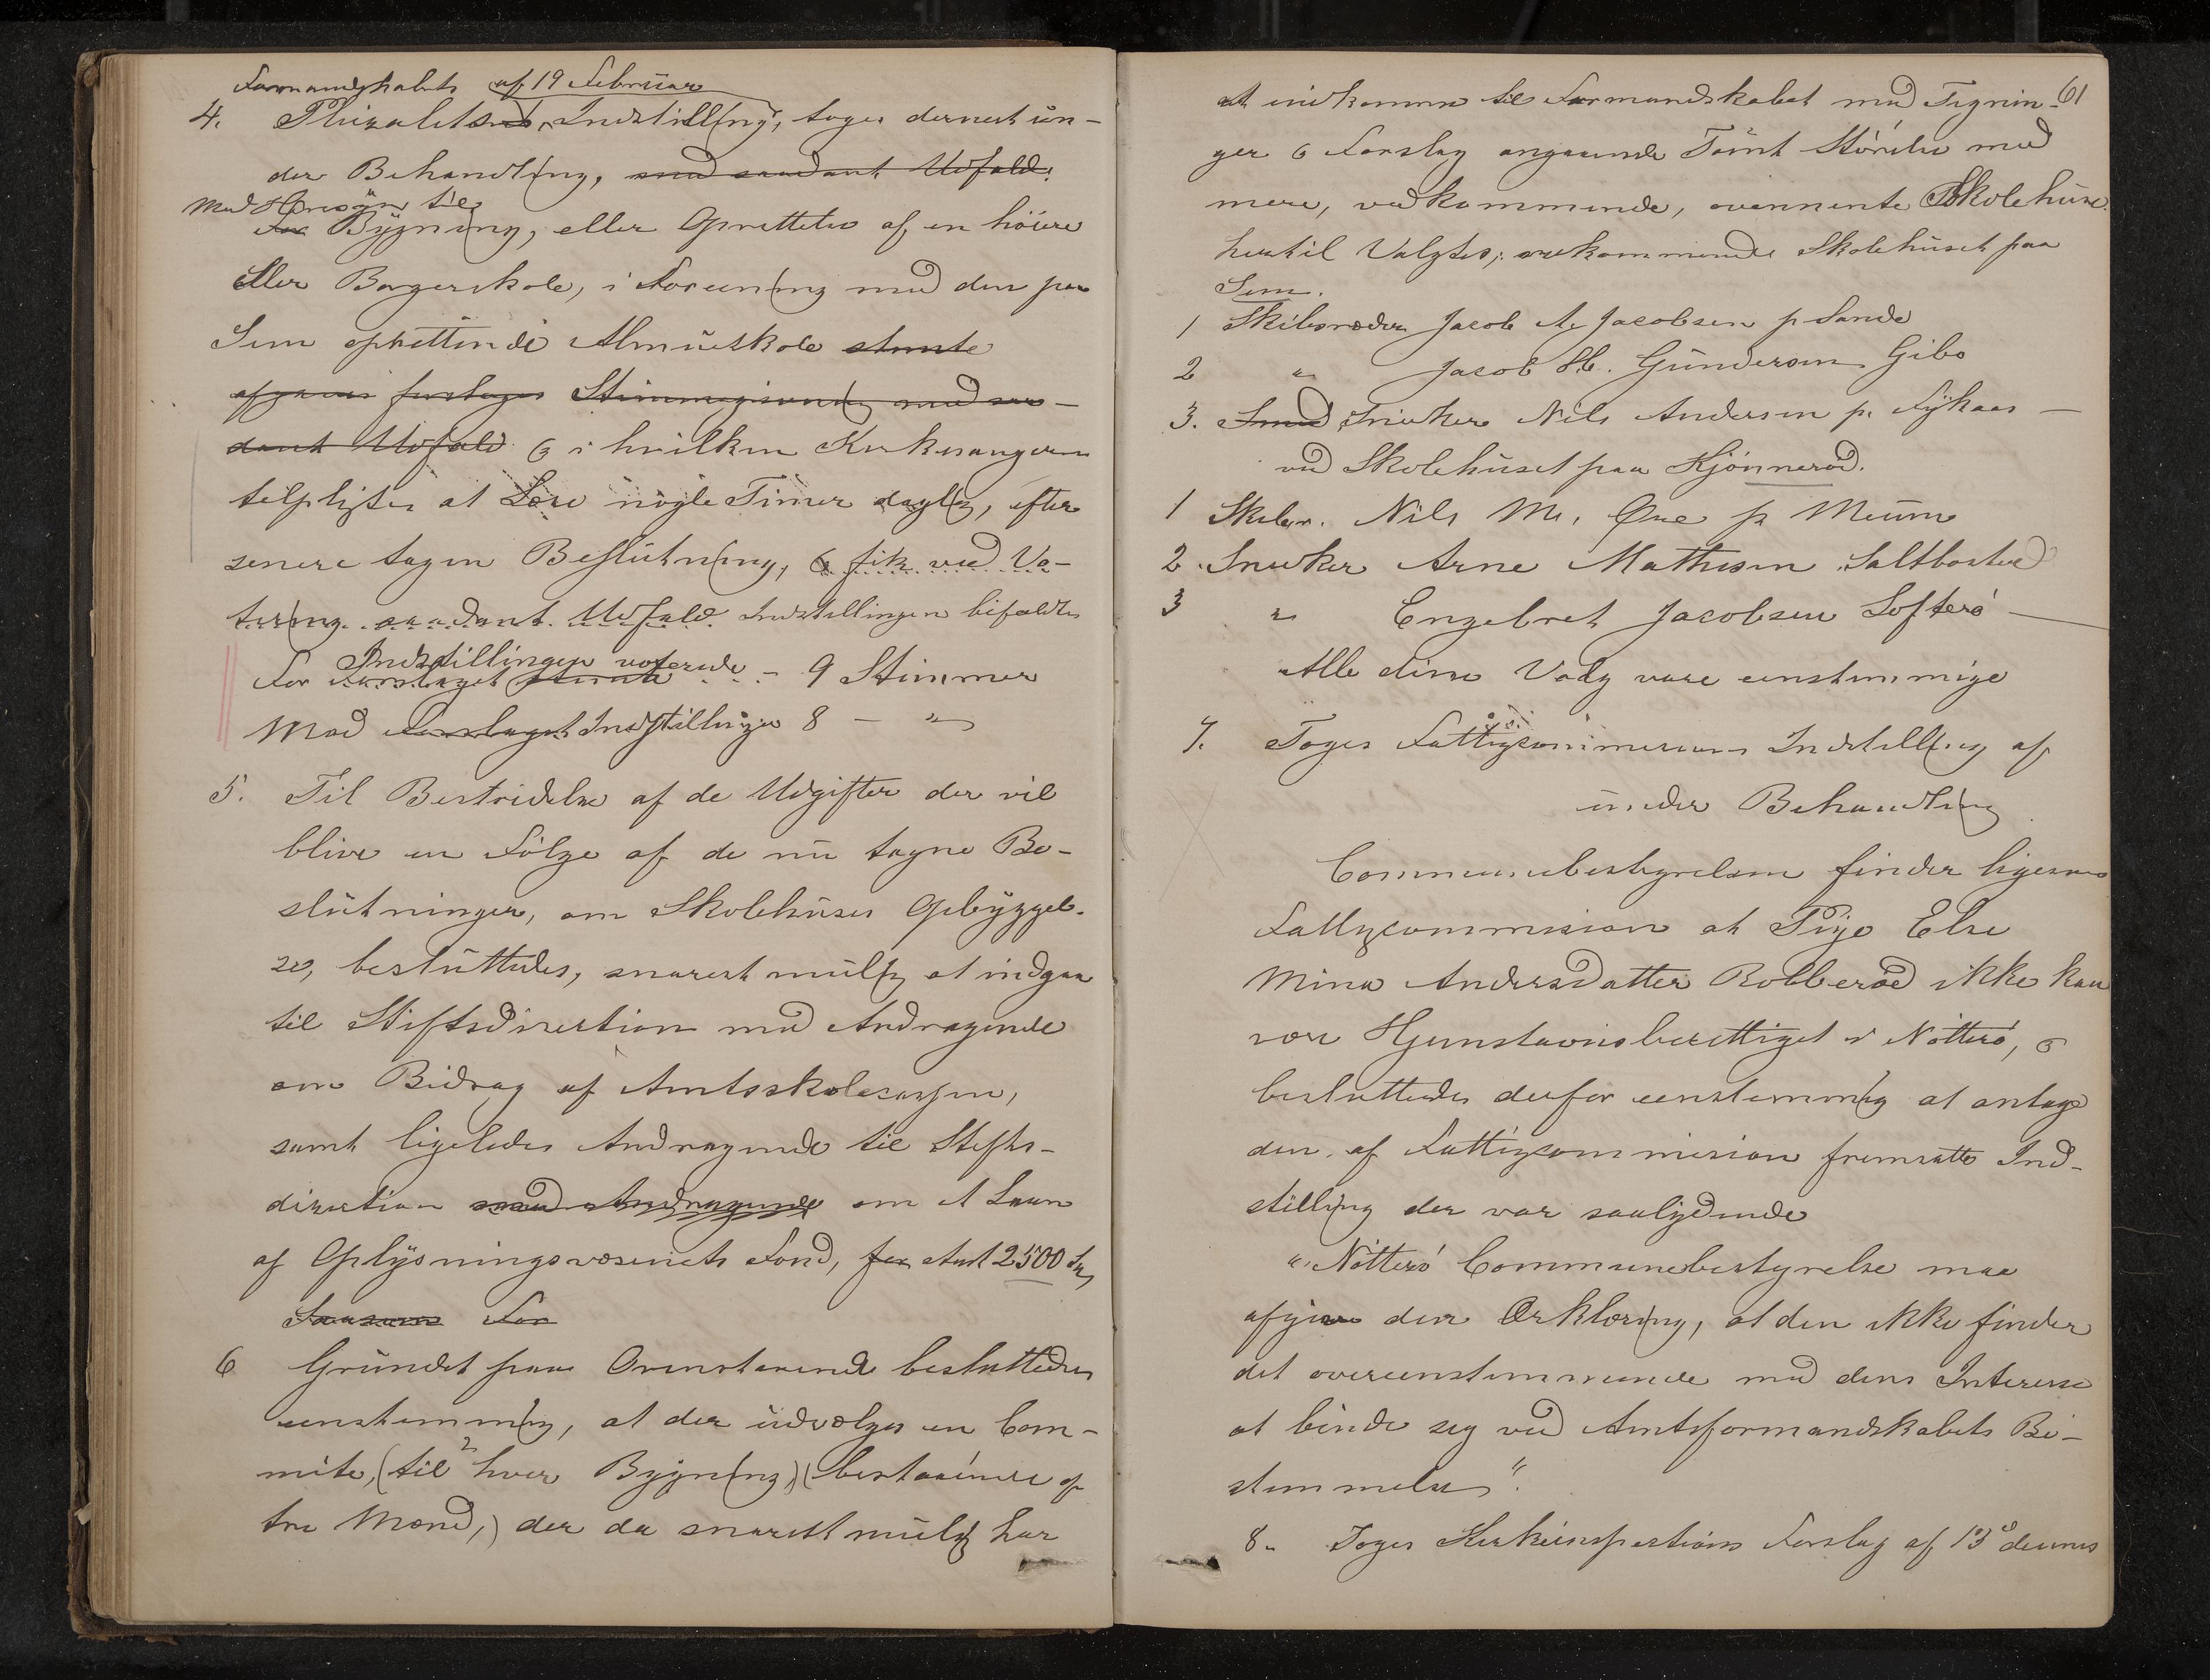 Formandskabets af 19 Februar
4. Pluralitets Indstilling, toges dernest un-
der Behandling, med saadant Udfald:
Med Hensyn til
for Bygning, eller Oprettelse af en høiere
eller Borgerskole, i Forening med den paa
Sem oprettende Almueskole stemte
afgaves forslages Stemmegivning med saa-
dant Udfald & i hvilken Kirkesangeren
tilpligtes at Lære nogle Timer daglig, efter
senere tagen Beslutning, & fik ved Vo-
tering saadant Udfald Indstillingen bifaldtes
Indstillingen voterede
For Forslaget stemte - 9 Stimmer
Mod Forslaget Indstillingen 8 - "
5. Til Bestridelse af de Udgifter der vil
blive en Følge af de nu tagne Be-
slutninger, om Skolehuses Opbyggel-
se, besluttedes, snarest mulig at indgaa
til Stiftsdirection med Andragende
om Bidrag af Amtsskolecassen,
samt ligeledes Andragende til Stifts-
direction med Andragende om et Laan
af Oplysningsvæsenets Fond, for stort 2500 Spd
Saasom For
6 Grundet paa Ovenstaaende besluttedes
eenstemmig, at der udvælges en Com-
mite, (til hver Bygning) (bestaaende af
tre Mænd,) der da snarest mulig har
61
at indkomme til Formandskabet med Tegnin-
ger & Forslag angaaende Tomt Størrelse med
mere, vedkommende, ovennente Skolehuse.
hertil Valgtes; vedkommende Skolehuset paa
Sem.
1 Skibsreder Jacob A. Jacobsen p Sande
2 " Jacob H. Gundersen Gibo
3. Smed Snedker Nils Andersen p. Lykaas
ved Skolehuset paa Kjønnerød.
1 Skibsr. Nils M. Øre p Meum
2. Snedker Arne Mathisen Saltbosted
3 " Engebret Jacobsen Lofterø
Alle disse Valg vare eenstemmige
7. Toges Fattigcommissions Indstilling af
under Behandling
Communebestyrelsen finder ligesom
Fattigcommission at Pige Else
Mina Andersdatter Robberød ikke kan
være Hjemstavnsberettiget i Nøtterø, &
besluttedes derfor eenstemmig at antage
den af Fattigcommission fremsatte Ind-
stilling der var saalydende
"Nøtterø Communebestyrelse maa
afgive den Erklæring, at den ikke finder
det overeenstemmende med dens Interesse
at binde seg ved Amtsformandskabets Be-
stemmelse".
8. Toges Kirkeinspections Forslag af 13de dennes